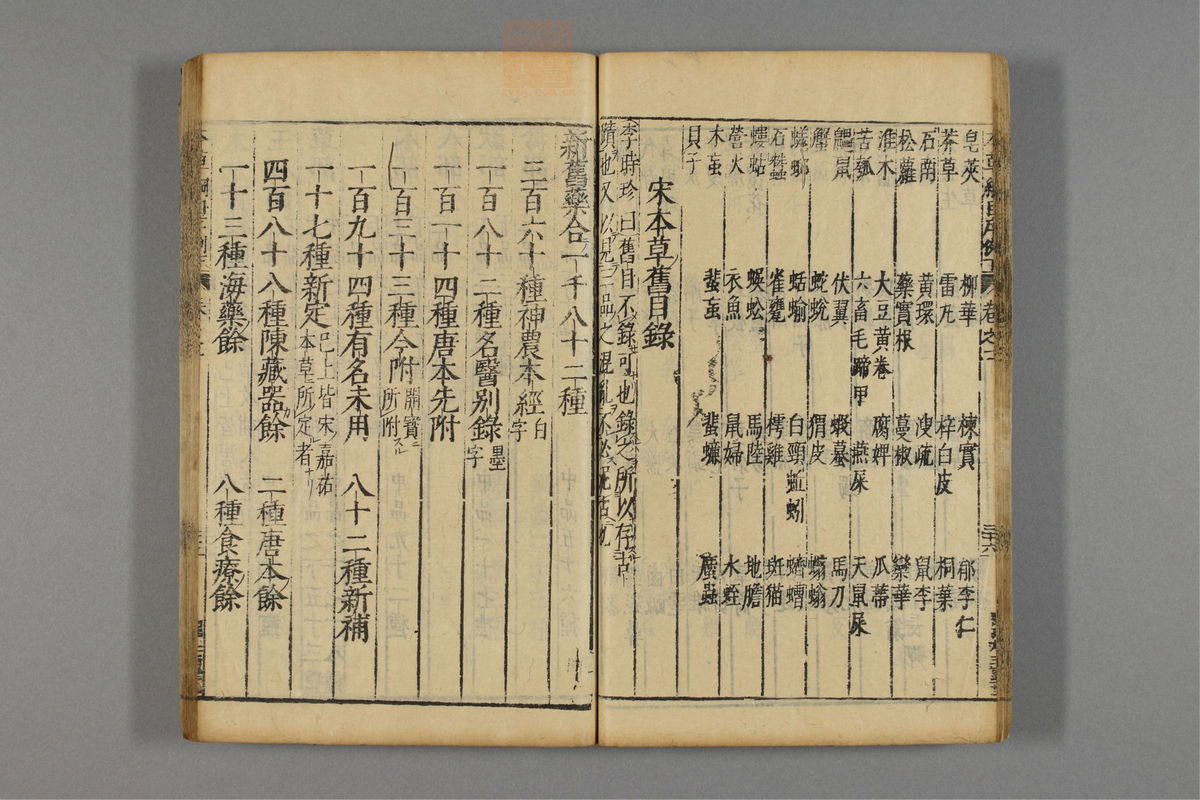 皂莢 柳華 楝實 郁李仁
莽草 雷丸 梓白皮 桐葉
石南 黃環 溲疏 鼠李
松蘿 藥實根 蔓椒 欒華
淮木 大豆黃卷 腐婢 瓜蒂
苦瓠 六畜毛蹄甲 燕屎 天鼠屎
鼺鼠 伏翼 蝦蟇 馬刀
蟹 蛇蛻 猬皮 蠮螉
蜣蜋 蛞蝓 白頸蚯蚓 蠐螬
石蠶 雀甕 樗雞 斑猫
螻蛄 蜈蚣 馬陸 地膽
螢火 衣魚 鼠婦 水蛭
木䖟 蜚䖟 蜚蠊 䗪蟲
貝子
宋本草舊目錄
李時珍曰舊目不錄可也錄之所以存古
蹟也又以見三品之混亂不必泥古
新舊藥合一千八十二種
三百六十種神農本經白字
一百八十二種名醫别錄墨字
一百一十四種唐本先附
一百三十三種今附開寶ニ所附スル
一百九十四種有名未用 八十二種新補
一十七種新定巳上皆宋嘉祐本草ニ所定ル者ナリ
四百八十八種陳藏器餘 二種唐本餘
一十三種海藥餘 八種食療餘